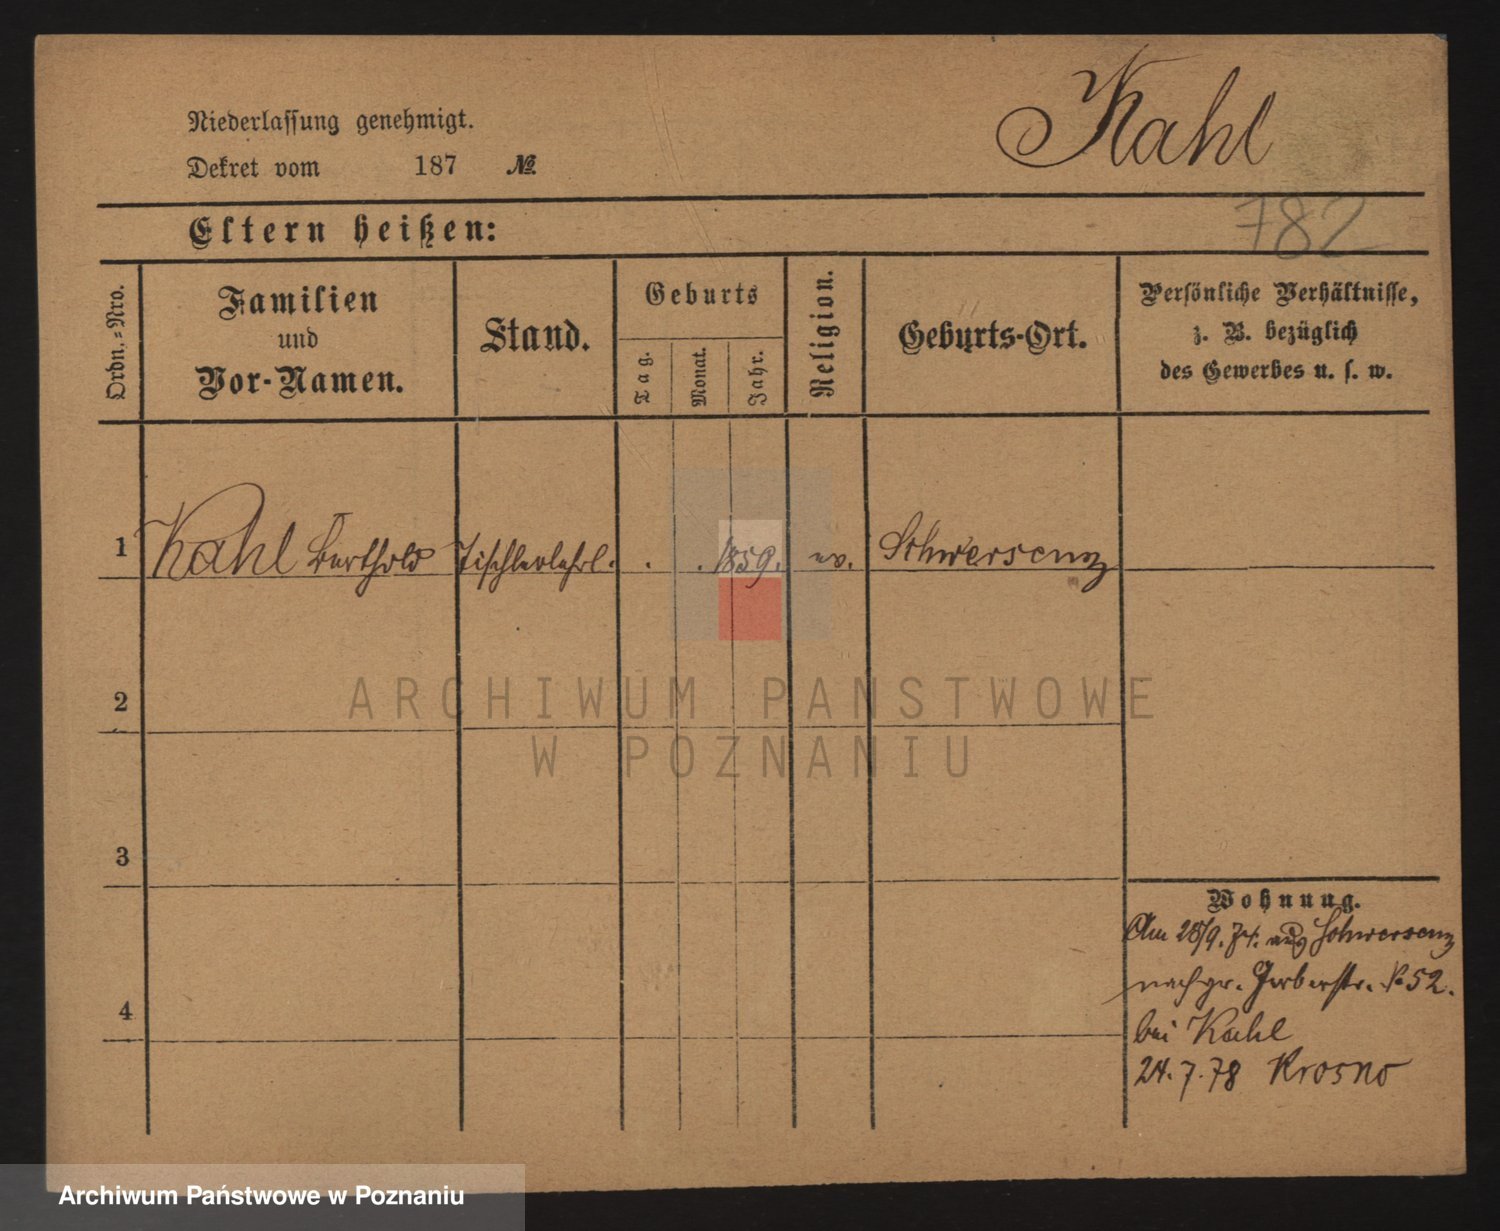 Kahl
Niederlassung genehmigt.
Dekret vom 187 №
Eltern heißen:
782
Ordn.-Nro.
Familien
und
Vor-Namen.
Stand.
Geburts
Tag.
Monat.
Jahr.
Religion.
Geburts-Ort.
Persönliche Verhältnisse,
z. B. bezüglich
des Gewerbes u. s. w.
1 Kahl Berthold Tischlerlehrl. . . 1859. ev. Schwersenz
2
3
4
Wohnung.
Am 28/9. 74. aus Schwersenz
nach gr. Gerberstr. № 52.
bei Kahl
24. 7. 78 Krosno
ARCHIWUM PAŃSTWOWE
W POZNANIU
Archiwum Państwowe w Poznaniu